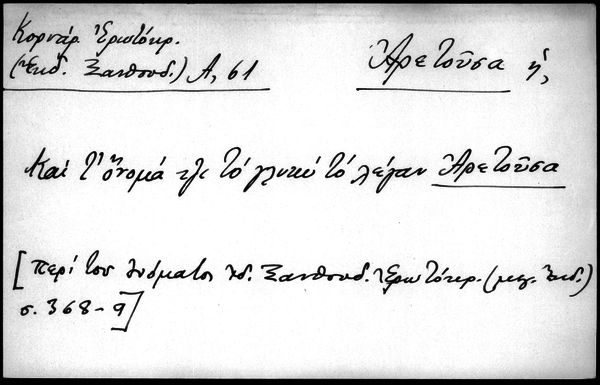 Κορνάρ. Ἐρωτόκρ.
(Ἔκδ. Ξανθουδ.) Α, 61
Ἀρετοῦσα ἡ,
Καὶ τ' ὄνομά τζι τὸ γλυκὺ τὸ λέγαν Ἀρετοῦσα
[περὶ τοῦ ὀνόματος ἰδ. Ξανθουδ. Ἐρωτόκρ. (μεγ. Ἔκδ.)
σ. 368-9]